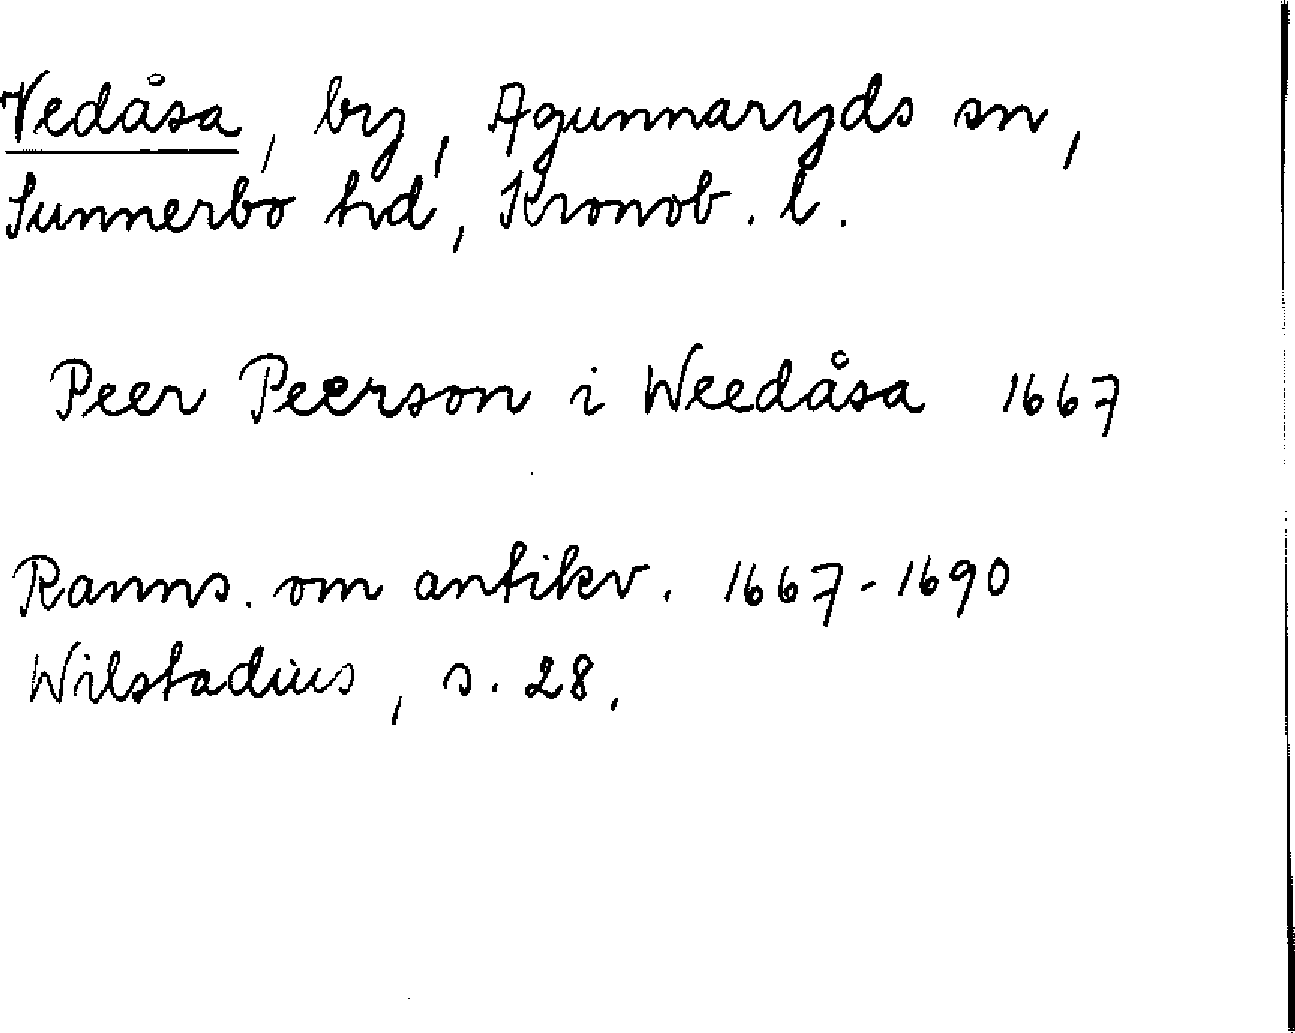 Vedåsa, by, Agunnaryds sn,
Sunnerbo hd, Kronob. l.
Peer Peerson i Weedåsa 1667
Ranns. om antikv. 1667-1690
Wilstadius, s. 28.